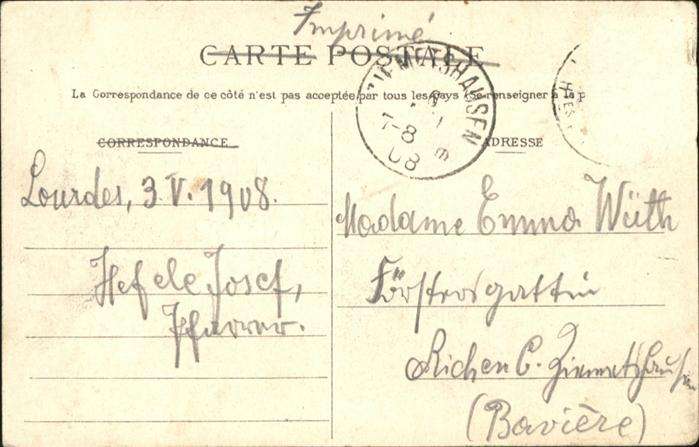 Imprimé
CARTE POSTALE
La Correspondance de ce côté n'est pas acceptée par tous les pays (Se renseigner à la p
ZIEMETSHAUSEN
7-8
08
CORRESPONDANCE
ADRESSE
Lourdes, 3 V. 1908.
Hefele Josef,
Pfarrer.
Madame Emma Wüth
Förstersgattin
Aichen b. Ziemetshausen
(Bavière)